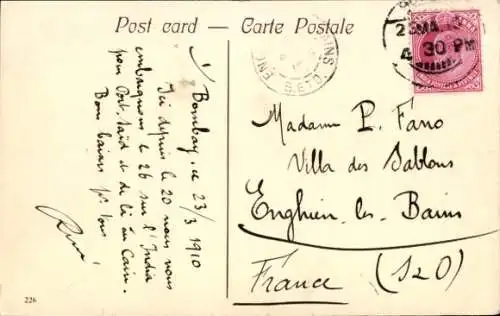 Post card — Carte Postale
Bombay, le 23/3 1910
Ici depuis le 20 nous nous
embarquons le 26 sur l'India
pour Port-Saïd et de là au Caire.
Bons baisers pr tous
Madame P. Fano
Villa des Sablons
Enghien-les-Bains
France (S&O)
4 30 PM
226